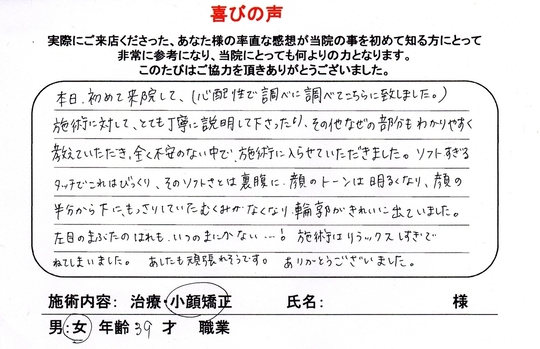 喜びの声
実際にご来店くださった、あなた様の率直な感想が当院の事を初めて知る方にとって
非常に参考になり、当院にとっても何よりの力となります。
このたびはご協力を頂きありがとうございました。
本日、初めて来院して、(心配性で調べに調べてこちらに致しました。)
施術に対して、とても丁寧に説明して下さったり、その他なぜの部分もわかりやすく
教えていただき、全く不安のない中で、施術に入らせていただきました。ソフトすぎる
タッチでこれはびっくり、そのソフトさとは裏腹に、顔のトーンは明るくなり、顔の
半分から下に、もっさりしていたむくみがなくなり、輪郭がきれいに出ていました。
左目のまぶたのはれも、いつのまにかない…! 施術はリラックスしすぎで
ねてしまいました。 あしたも頑張れそうです。 ありがとうございました。
施術内容: 治療・小顔矯正 氏名: 様
男:女 年齢39才 職業